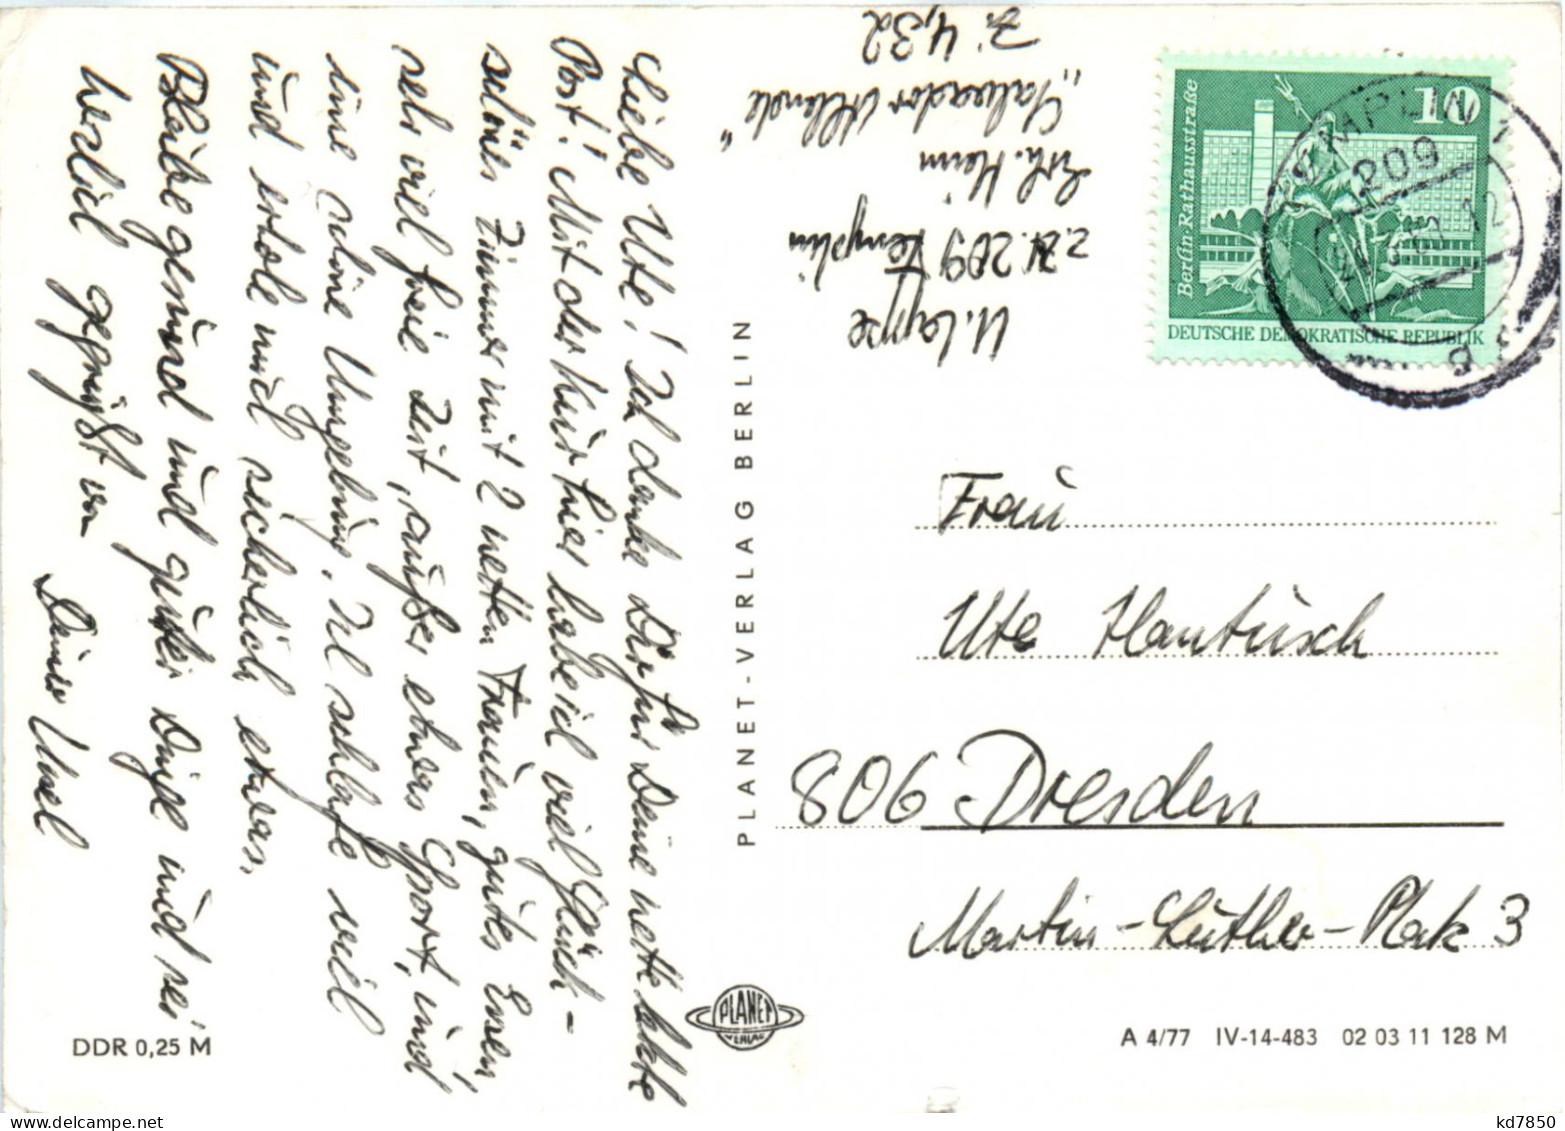 Liebe Ute! Ich danke Dir für Deine nette Karte
Post! Mit der Kur hier habe ich viel Glück -
schönes Zimmer mit 2 netten Frauen, gutes Essen,
sehr viel freie Zeit, außer etwas Sport, und
eine schöne Umgebung. Ich schlafe viel
und erhole mich sicherlich etwas.
Bleibe gesund und guter Dinge und sei
herzlich gegrüßt von
Deiner
U. Lappe
z. Zt. 209 Templin
Erh. Heim
"Salvador Allende"
Zi 432
PLANET-VERLAG BERLIN
10
Berlin-Rathausstraße
DEUTSCHE DEMOKRATISCHE REPUBLIK
TEMPLIN 1
209
Frau
Ute Hantusch
806 Dresden
Martin-Luther-Platz 3
PLANET
VERLAG
DDR 0,25 M
A 4/77 IV-14-483 02 03 11 128 M
kd7850